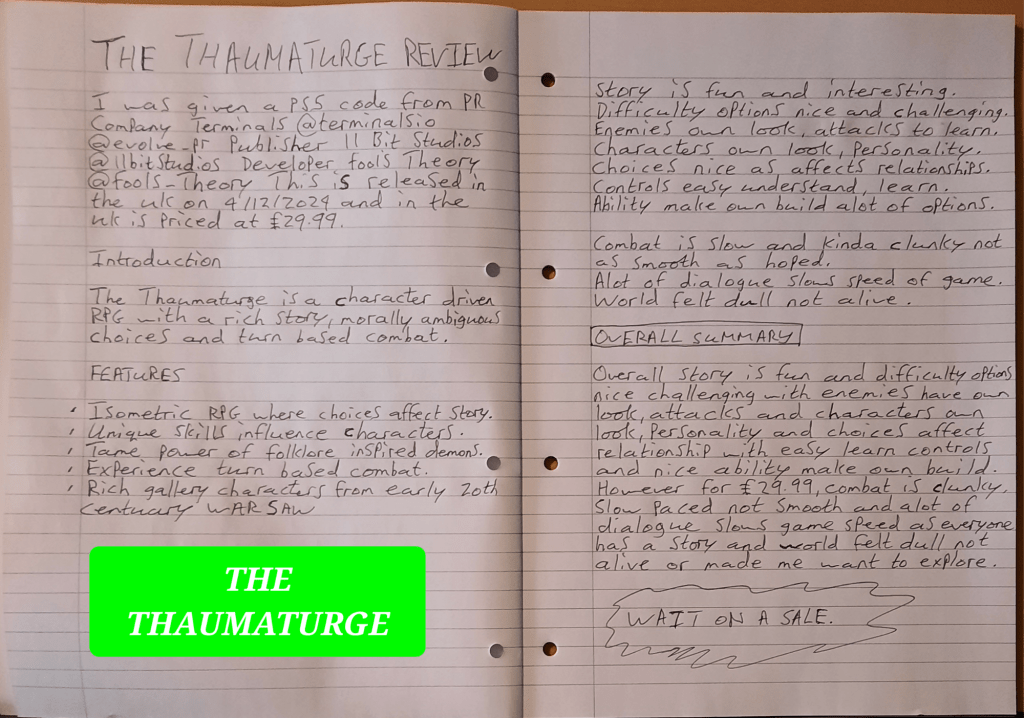 THE THAUMATURGE REVIEW
I was given a PS5 code from PR
Company Terminals @terminalsio
@evolve_pr Publisher 11 Bit Studios
@11bitStudios Developer fools Theory
@fools_Theory This is released in
the uk on 4/12/2024 and in the
uk is priced at £29.99.
Introduction
The Thaumaturge is a character driven
RPG with a rich story, morally ambiguous
choices and turn based combat.
FEATURES
Isometric RPG where choices affect story.
Unique skills influence characters.
Tame power of folklore inspired demons.
Experience turn based combat.
Rich gallery characters from early 20th
Centuary WARSAW
THE
THAUMATURGE
Story is fun and interesting.
Difficulty options nice and challenging.
Enemies own look, attacks to learn.
Characters own look, Personality.
Choices nice as affects relationships.
Controls easy understand, learn.
Ability make own build alot of options.
Combat is slow and kinda clunky not
as smooth as hoped.
Alot of dialogue slows speed of game.
World felt dull not alive.
OVERALL SUMMARY
Overall story is fun and difficulty options
nice challenging with enemies have own
look, attacks and characters own
look, Personality and choices affect
relationship with easy learn controls
and nice ability make own build.
However for £29.99, combat is clunky,
Slow paced not smooth and alot of
dialogue slows game speed as everyone
has a story and world felt dull not
alive or made me want to explore.
WAIT ON A SALE.